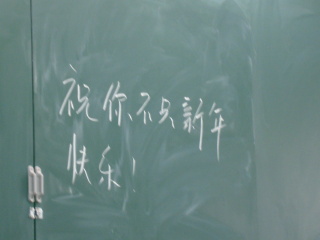 祝你不只新年
快乐！